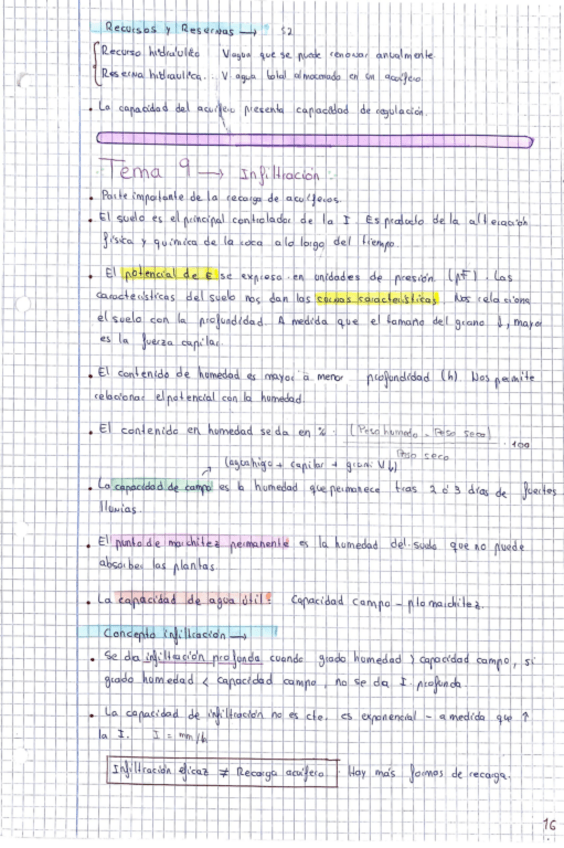 Recursos y Reservas → 12
Recurso hidráulico V agua que se puede renovar anualmente
Reserva hidráulica.. V. agua total almacenado en un acuífero
. La capacidad del acuífero presenta capacidad de regulación.
Tema 9 → Infiltración
. Parte importante de la recarga de acuíferos.
. El suelo es el principal controlador de la I. Es producto de la alteración
física y química de la roca a lo largo del tiempo
. El potencial de E se expresa en unidades de presión (pF). Las
características del suelo nos dan las curvas características. Nos relaciona
el suelo con la profundidad. A medida que el tamaño del grano ↓, mayor
es la fuerza capilar.
. El contenido de humedad es mayor a menor profundidad (h) Nos permite
relacionar el potencial con la humedad.
. El contenido en humedad se da en %. (Peso humedo - Peso seco) · 100
Peso seco
(agua higo + capilar + grav.
. La capacidad de campo es la humedad que permanece tras 2 ó 3 días de fuertes
lluvias.
. El punto de marchitez permanente es la humedad del suelo que no puede
absorber las plantas
. La capacidad de agua útil: Capacidad campo - pto marchitez.
Concepto infiltración →
. Se da infiltración profunda cuando grado humedad > capacidad campo, si
grado humedad < capacidad campo, no se da I. profunda.
. La capacidad de infiltración no es cte. es exponencial - a medida que ↑
la I. I = mm/h
Infiltración eficaz ≠ Recarga acuífero. Hay más formas de recarga.
16